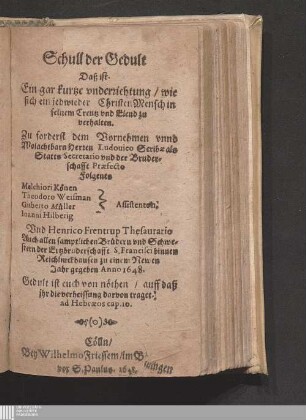 Schull der Gedult
Daß ist.
Ein gar kurtze vnderrichtung / wie
sich ein jedwieder Christen Mensch in
seinem Creutz vnd Elend zu
verhalten.
Zu forderst dem Vornehmen vnnd
Wolachtbarn Herren Ludouico Scribæ als
Staten Secretario vnd der Bruder-
schafft Præfecto
Folgents
Melchiori Könen
Theodoro Weisman
Gisberto Müller
Ioanni Hilberig
Assistenten.
Vnd Henrico Frentrup Thesaurario
Auch allen samptlichen Brüdern vnd Schwe-
stern der Ertzbruderschafft S. Francisci binnen
Reichlinckhausen zu einem Newen
Jahr gegeben Anno 1648.
Gedult ist euch von nöthen / auff daß
ihr die verheissung darvon traget.
ad Hebræos cap. 10.
Cölln /
Bey Wilhelmo Friessem / im
vor S. Paulus.